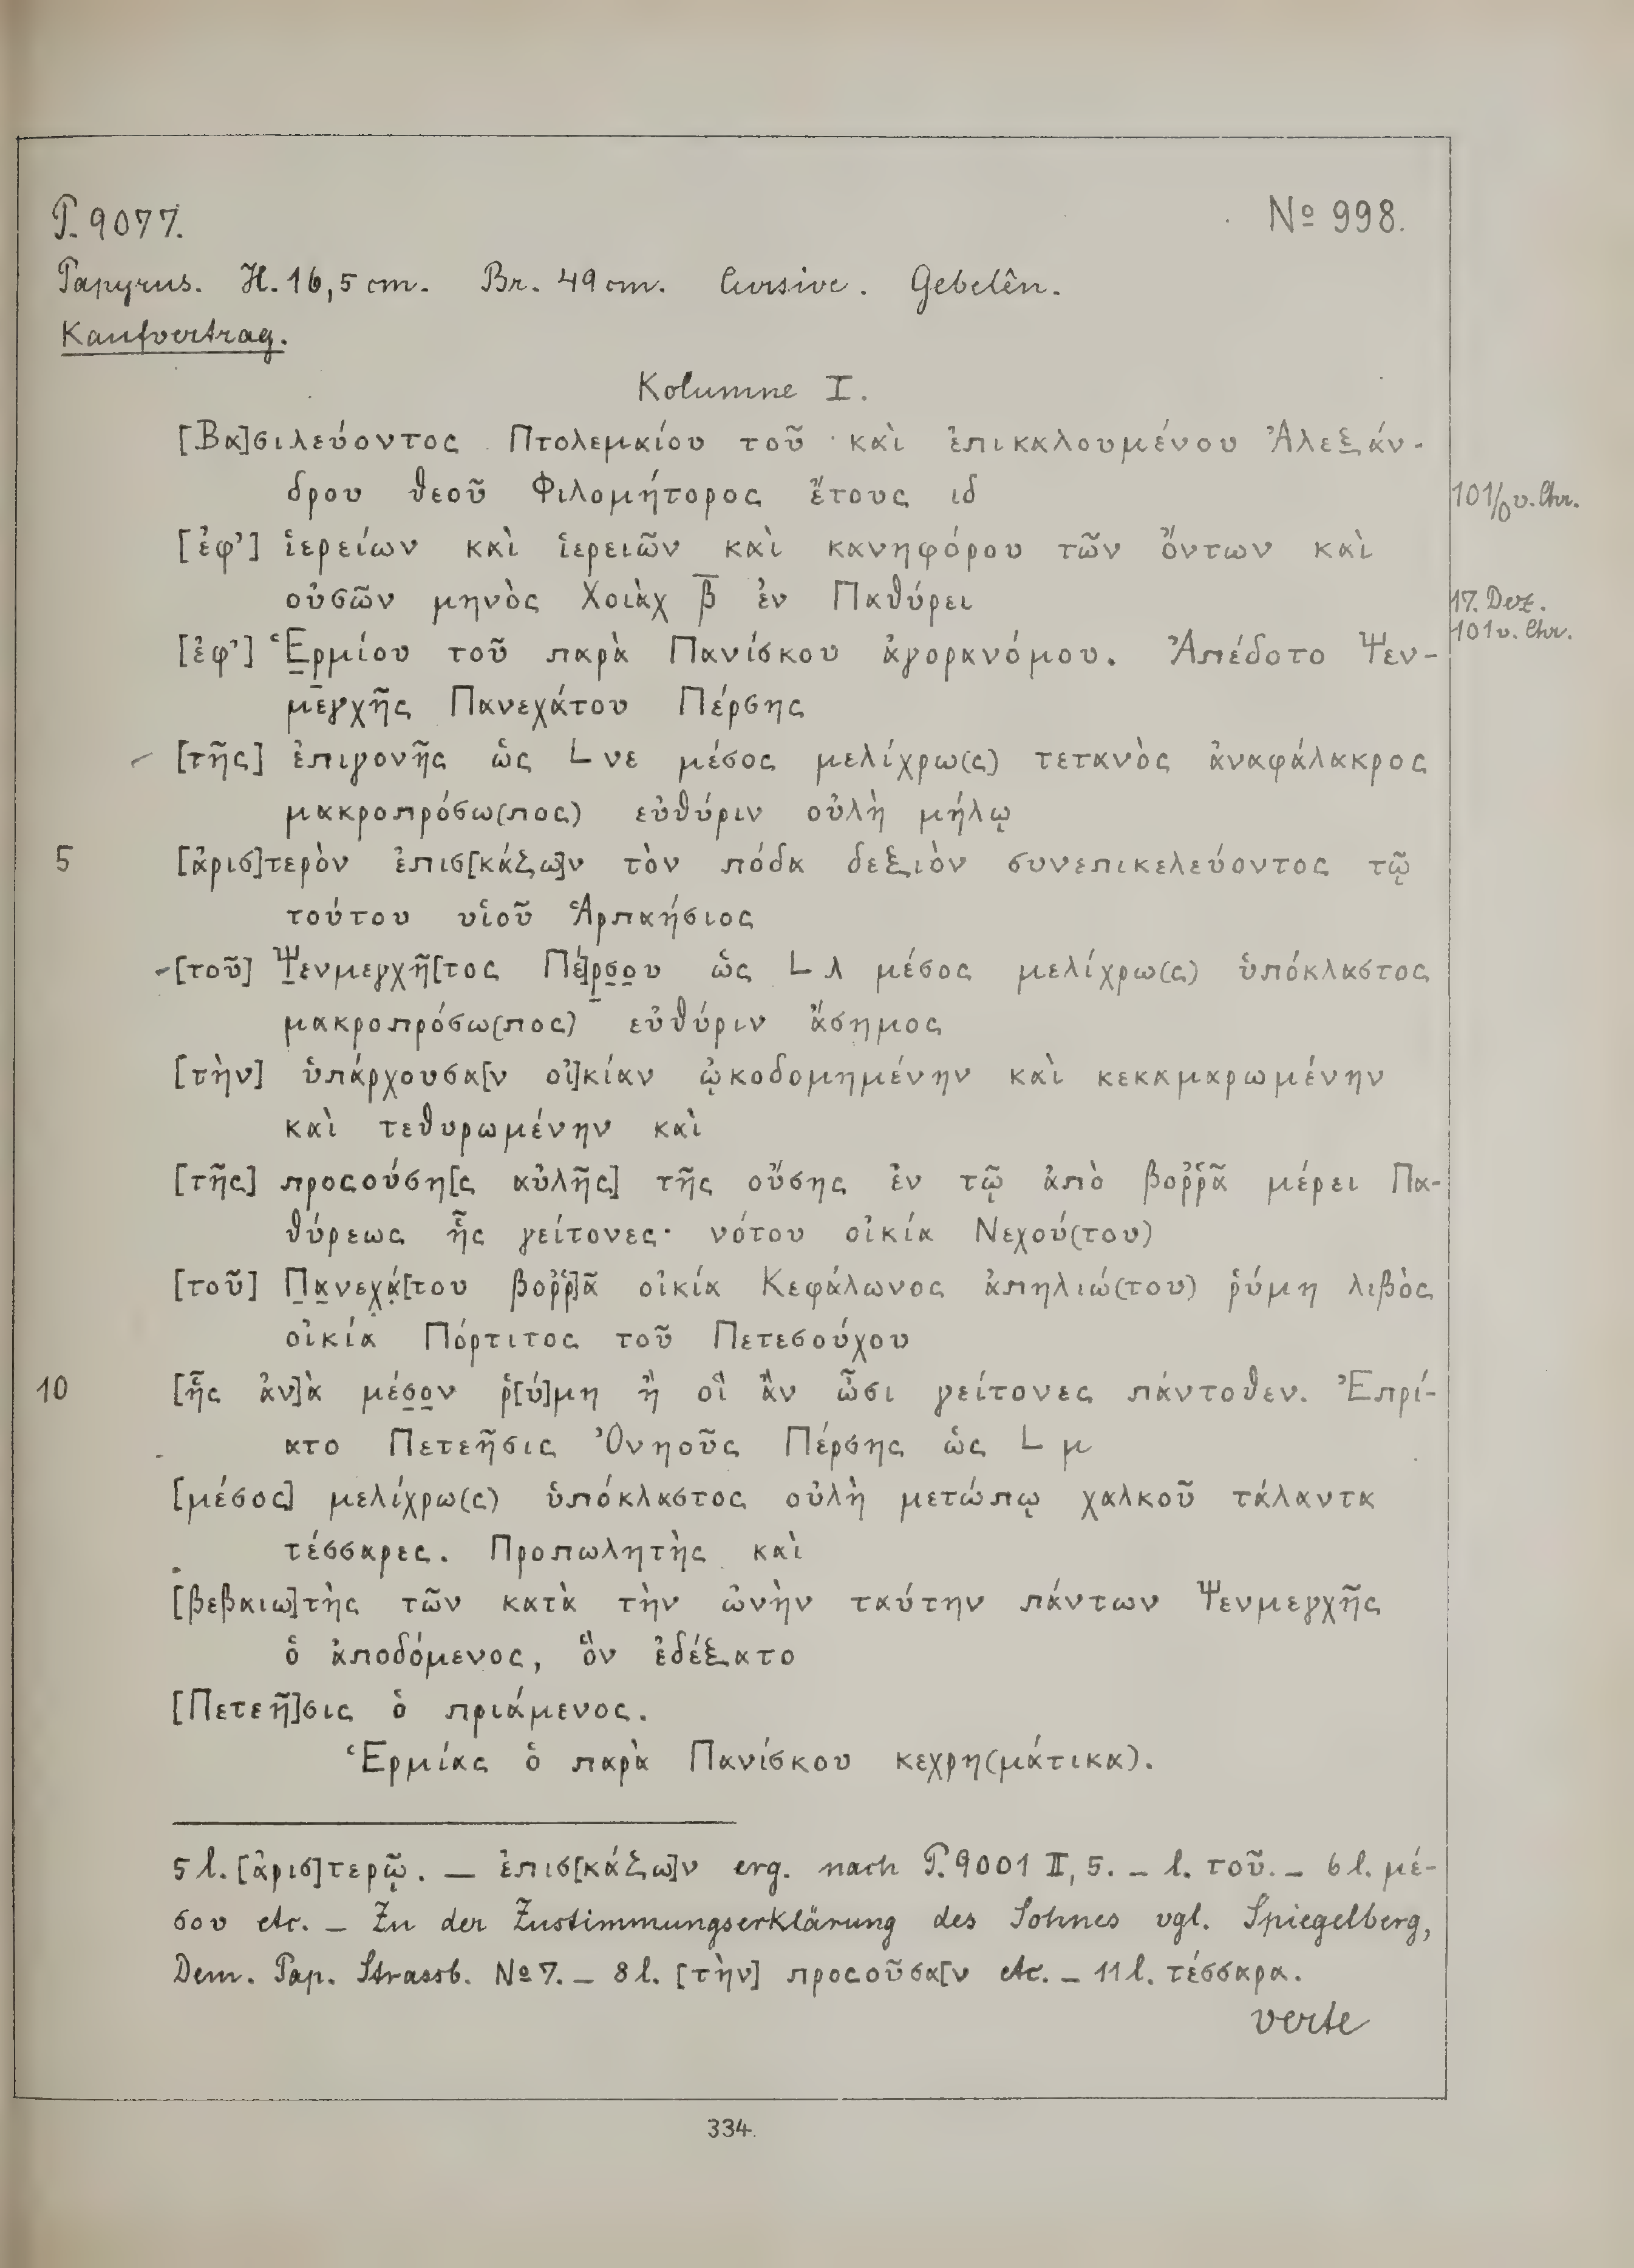 P. 9077. № 998.
Papyrus. H. 16,5 cm. Br. 49 cm. Cursive. Gebelên.
Kaufvertrag.
Kolumne I.
[Βα]σιλεύοντος Πτολεμαίου τοῦ καὶ ἐπικαλουμένου Ἀλεξάν-
δρου θεοῦ Φιλομήτορος ἔτους ιδ 101/0 v. Chr.
[ἐφ’] ἱερείων καὶ ἱερειῶν καὶ κανηφόρου τῶν ὄντων καὶ
οὐσῶν μηνὸς Χοιὰχ β̅ ἐν Παθύρει 17. Dez.
101 v. Chr.
[ἐφ’] Ἑ̲ρμίου τοῦ παρὰ Πανίσκου ἀγορανόμου. Ἀπέδοτο Ψεν-
μεγχῆς Πανεχάτου Πέρσης
[τῆς] ἐπιγονῆς ὡς L νε μέσος μελίχρω(ς) τετανὸς ἀναφάλακρος
μακροπρόσω(πος) εὐθύριν οὐλὴ μήλῳ
5 [ἀρισ]τερὸν ἐπισ[κάζω]ν τὸν πόδα δεξιὸν συνεπικελεύοντος τῷ
τούτου υἱοῦ Ἁρπαήσιος
[τοῦ] Ψ̲ενμεγχῆ[τος Πέ]ρ̲σ̲ο̲υ ὡς L λ μέσος μελίχρω(ς) ὑπόκλαστος
μακροπρόσω(πος) εὐθύριν ἄσημος
[τὴν] ὑπάρχουσα[ν οἰ]κίαν ᾠκοδομημένην καὶ κεκαμαρωμένην
καὶ τεθυρωμένην καὶ
[τῆς] προσούση[ς αὐλῆς] τῆς οὔσης ἐν τῷ ἀπὸ βοῤῥᾶ μέρει Πα-
θύρεως ἧς γείτονες· νότου οἰκία Νεχού(του)
[τοῦ] Π̲α̲νεχά̣[του βοῤῥ]ᾶ οἰκία Κεφάλωνος ἀπηλιώ(του) ῥύμη λιβὸς
οἰκία Πόρτιτος τοῦ Πετεσούχου
10 [ἧς ἀν]ὰ μέσ̲ο̲ν ῥ[ύ]μη ἢ οἳ ἂν ὦσι γείτονες πάντοθεν. Ἐπρί-
ατο Πετεῆσις Ὀνηοῦς Πέρσης ὡς L μ
[μέσος] μελίχρω(ς) ὑπόκλαστος οὐλὴ μετώπῳ χαλκοῦ τάλαντα
τέσσαρες. Προπωλητὴς καὶ
[βεβαιω]τὴς τῶν κατὰ τὴν ὠνὴν ταύτην πάντων Ψενμεγχῆς
ὁ ἀποδόμενος, ὃν ἐδέξατο
[Πετεῆ]σις ὁ πριάμενος.
Ἑρμίας ὁ παρὰ Πανίσκου κεχρη(μάτικα).
5 l. [ἀρισ]τερῷ. – ἐπισ[κάζω]ν erg. nach P. 9001 II, 5. – l. τοῦ. – 6 l. μέ-
σου etc. – Zu der Zustimmungserklärung des Sohnes vgl. Spiegelberg,
Dem. Pap. Strassb. № 7. – 8 l. [τὴν] προσοῦσα[ν etc. – 11 l. τέσσαρα.
verte
334.